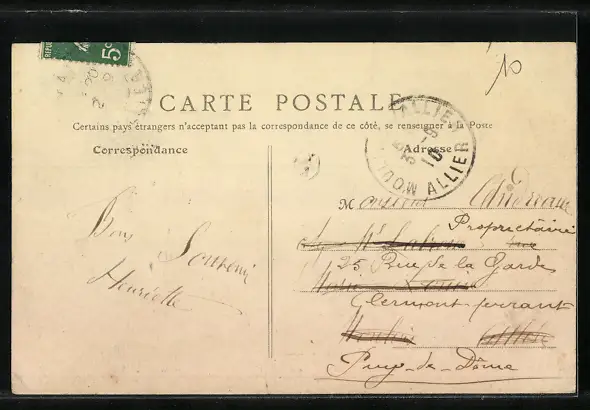 10
5c
CARTE POSTALE
Certains pays étrangers n'acceptant pas la correspondance de ce côté, se renseigner à la Poste
Correspondance
Adresse
MOULINS ALLIER
Bon Souvenir
Henriette
Monsieur Andreau
Propriétaire
25 Rue de la Garde
Clermont ferrant
Moulins Allier
Puy-de-Dôme